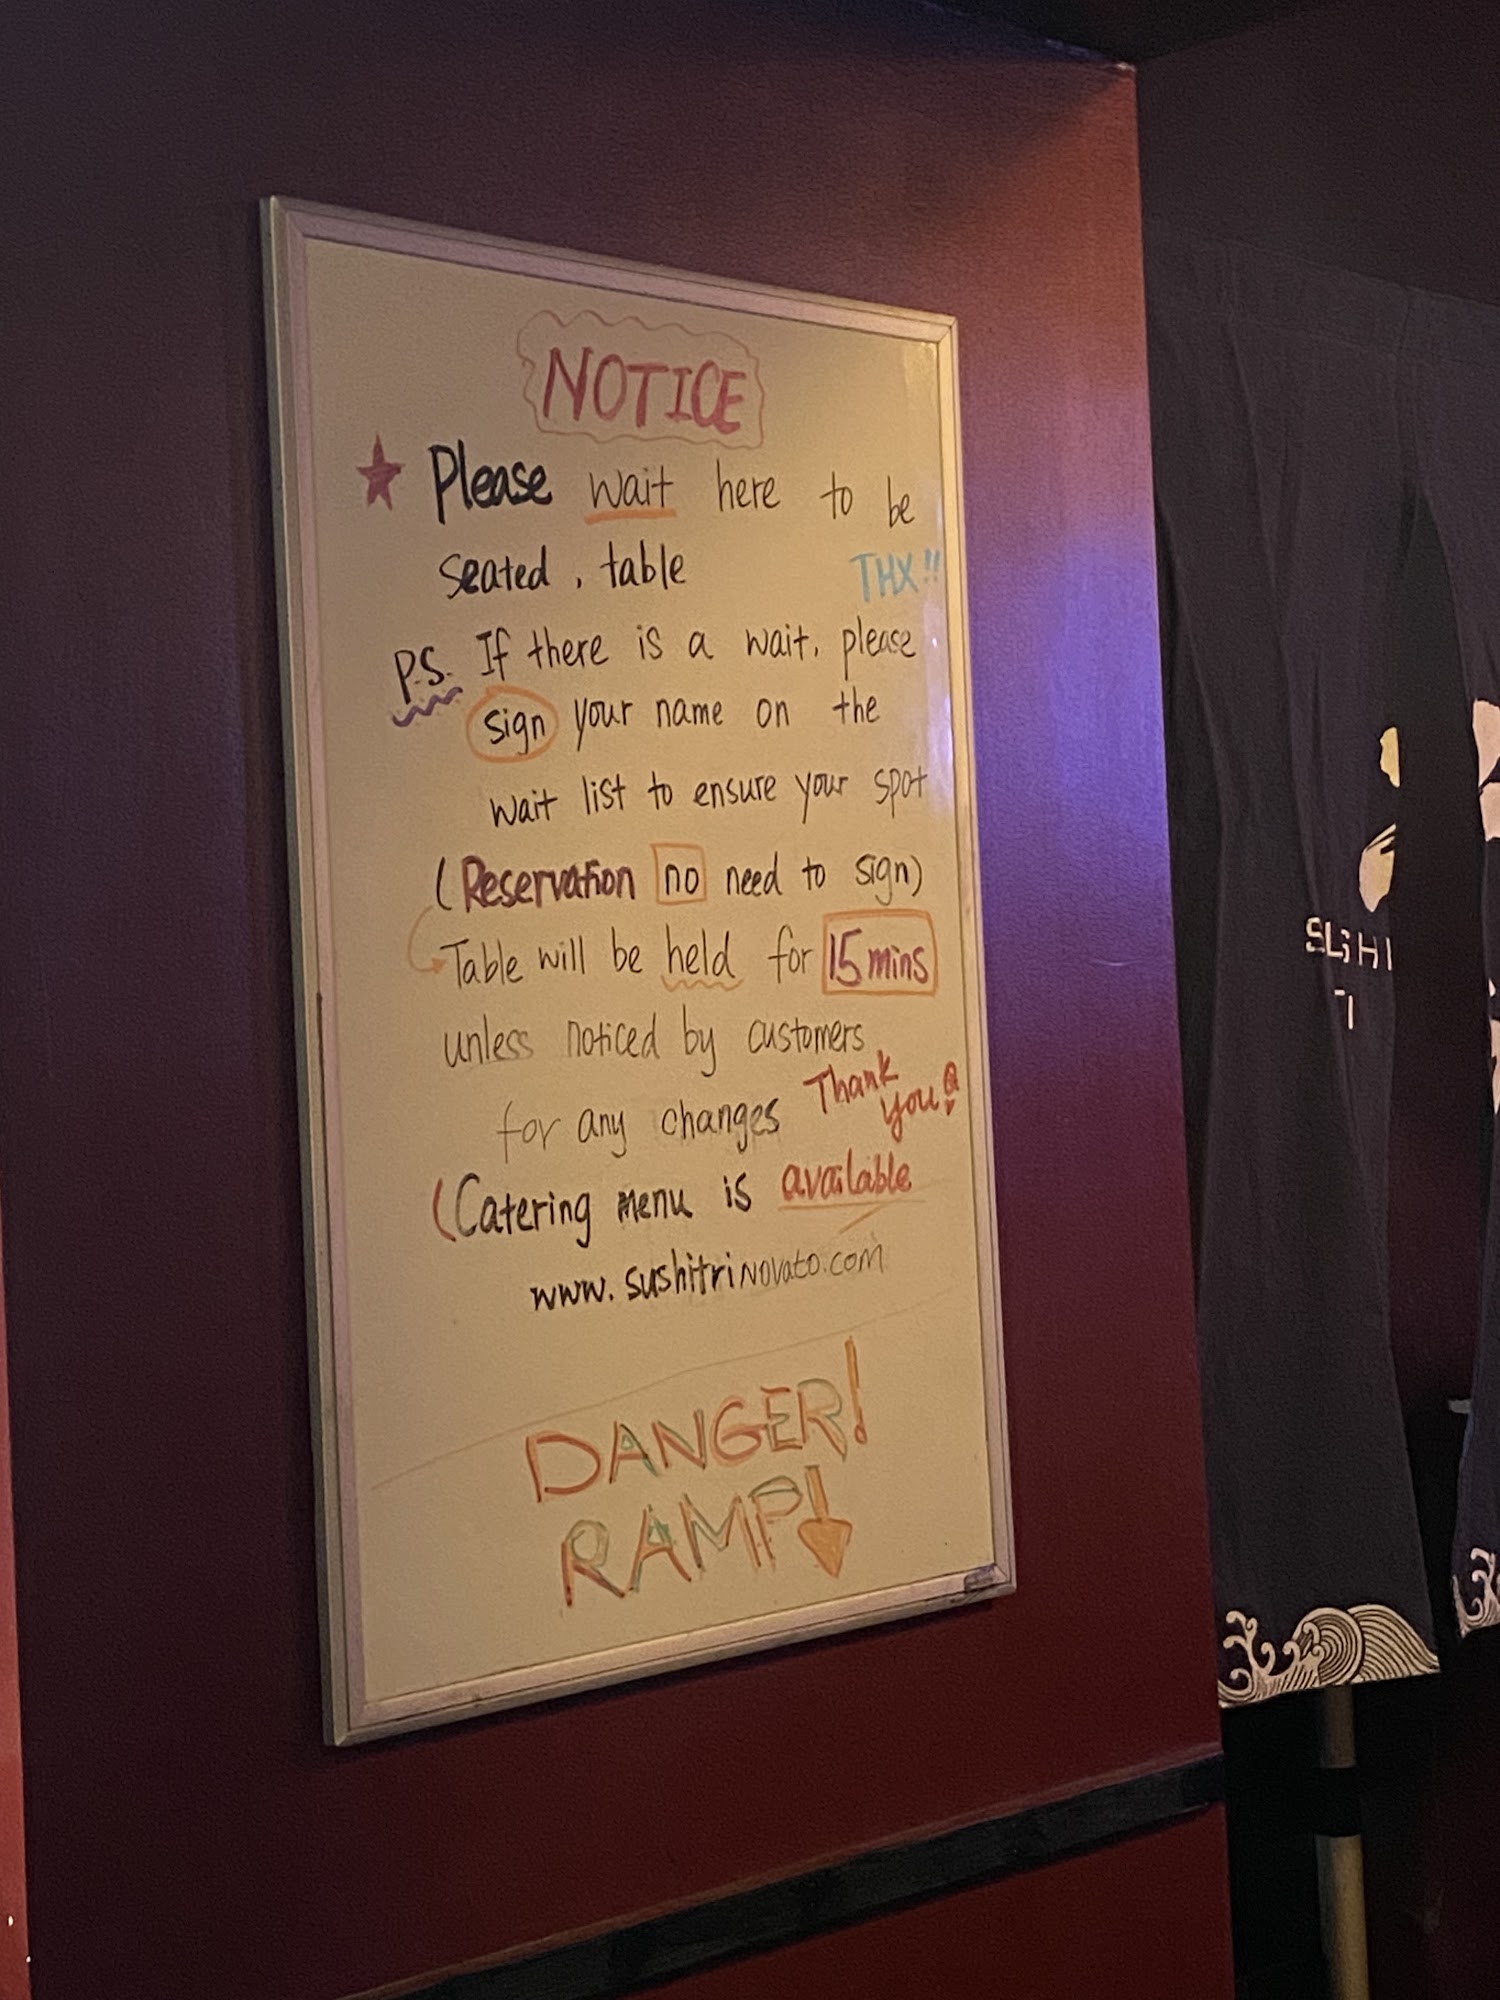 NOTICE
★ Please wait here to be
seated, table THX!!
P.S. If there is a wait, please
sign your name on the
wait list to ensure your spot
(Reservation no need to sign)
Table will be held for 15 mins
unless noticed by customers
for any changes Thank you!
(Catering menu is available
www.sushitrinovato.com
DANGER!
RAMP!